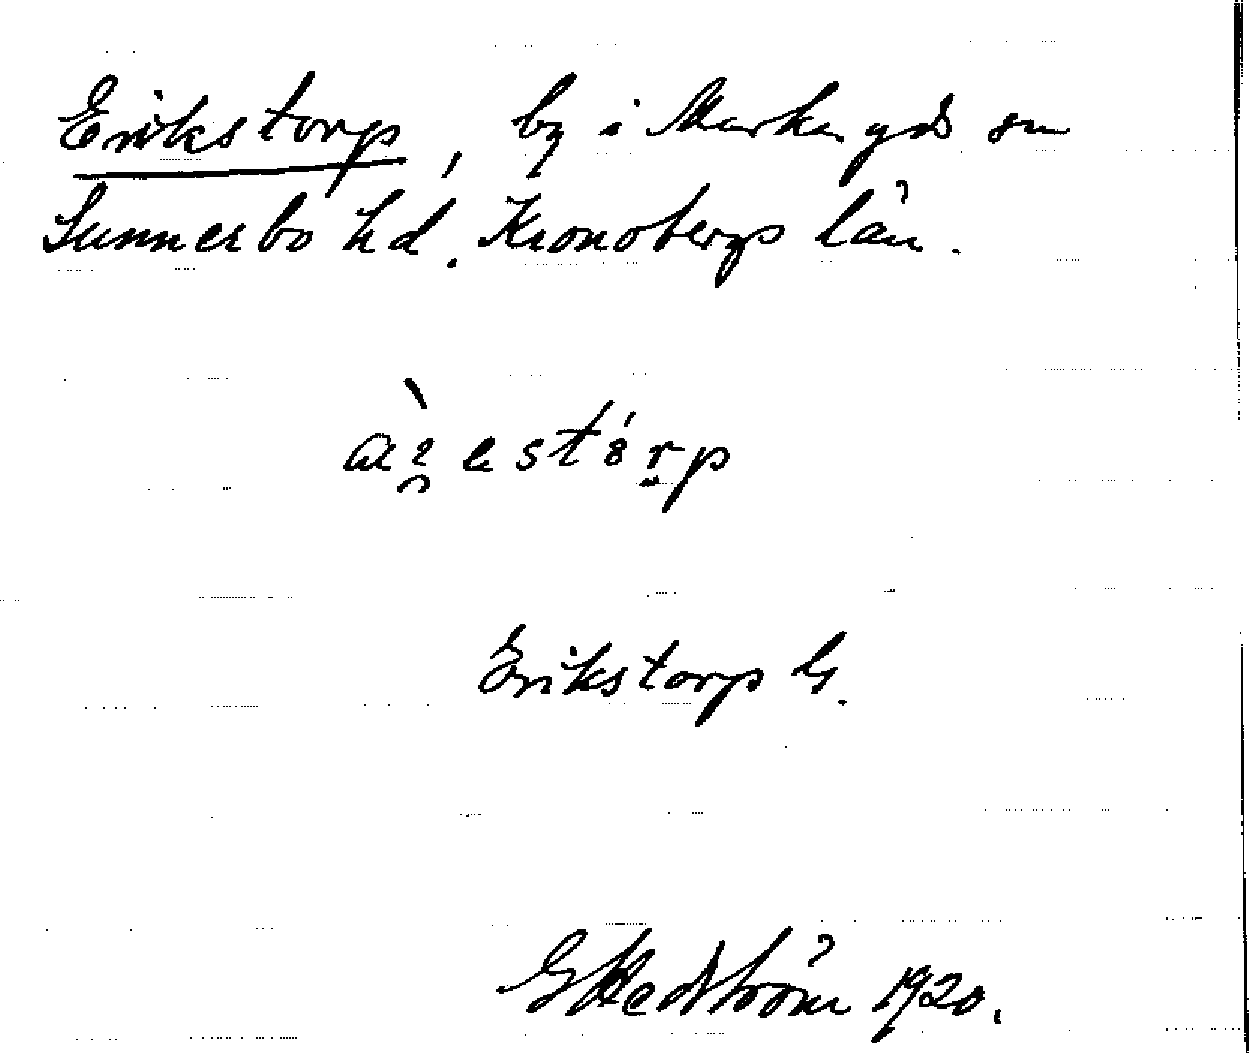 Erikstorp, by i Markaryds sn
Sunnerbo hd. Kronobergs län.
Erikstorp G.
G Hedström 1920.